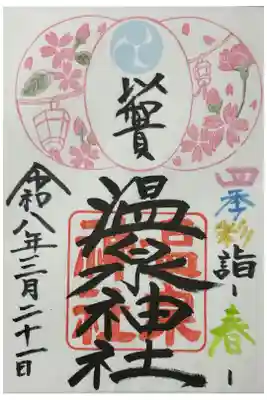 四季彩詣-春-
温泉神社
令和八年三月二十一日